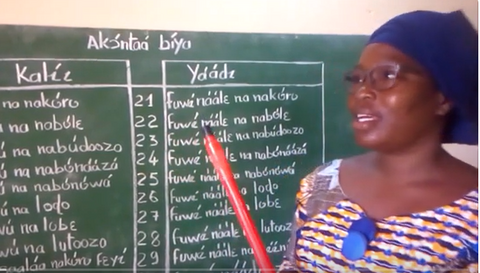 Akɔ́ntaá bíya
Kalɛ́ɛ Yáádɛ
na nakɔ́ro 21 Fuwɛ́ náálɛ na nakɔ́ro
na nabɔ́lɛ 22 Fuwɛ́ náálɛ na nabɔ́lɛ
na nabúdoozo 23 Fuwɛ́ náálɛ na nabúdoozo
na nabɔ́náázá 24 Fuwɛ́ náálɛ na nabɔ́náázá
na nabɔ́nɔ́wá 25 Fuwɛ́ náálɛ na nabɔ́nɔ́wá
na lodo 26 Fuwɛ́ náálɛ na lodo
na lobɛ 27 Fuwɛ́ náálɛ na lobɛ
na lutoozo 28 Fuwɛ́ náálɛ na lutoozo
nakɔ́ro 29 Fuwɛ́ náálɛ na